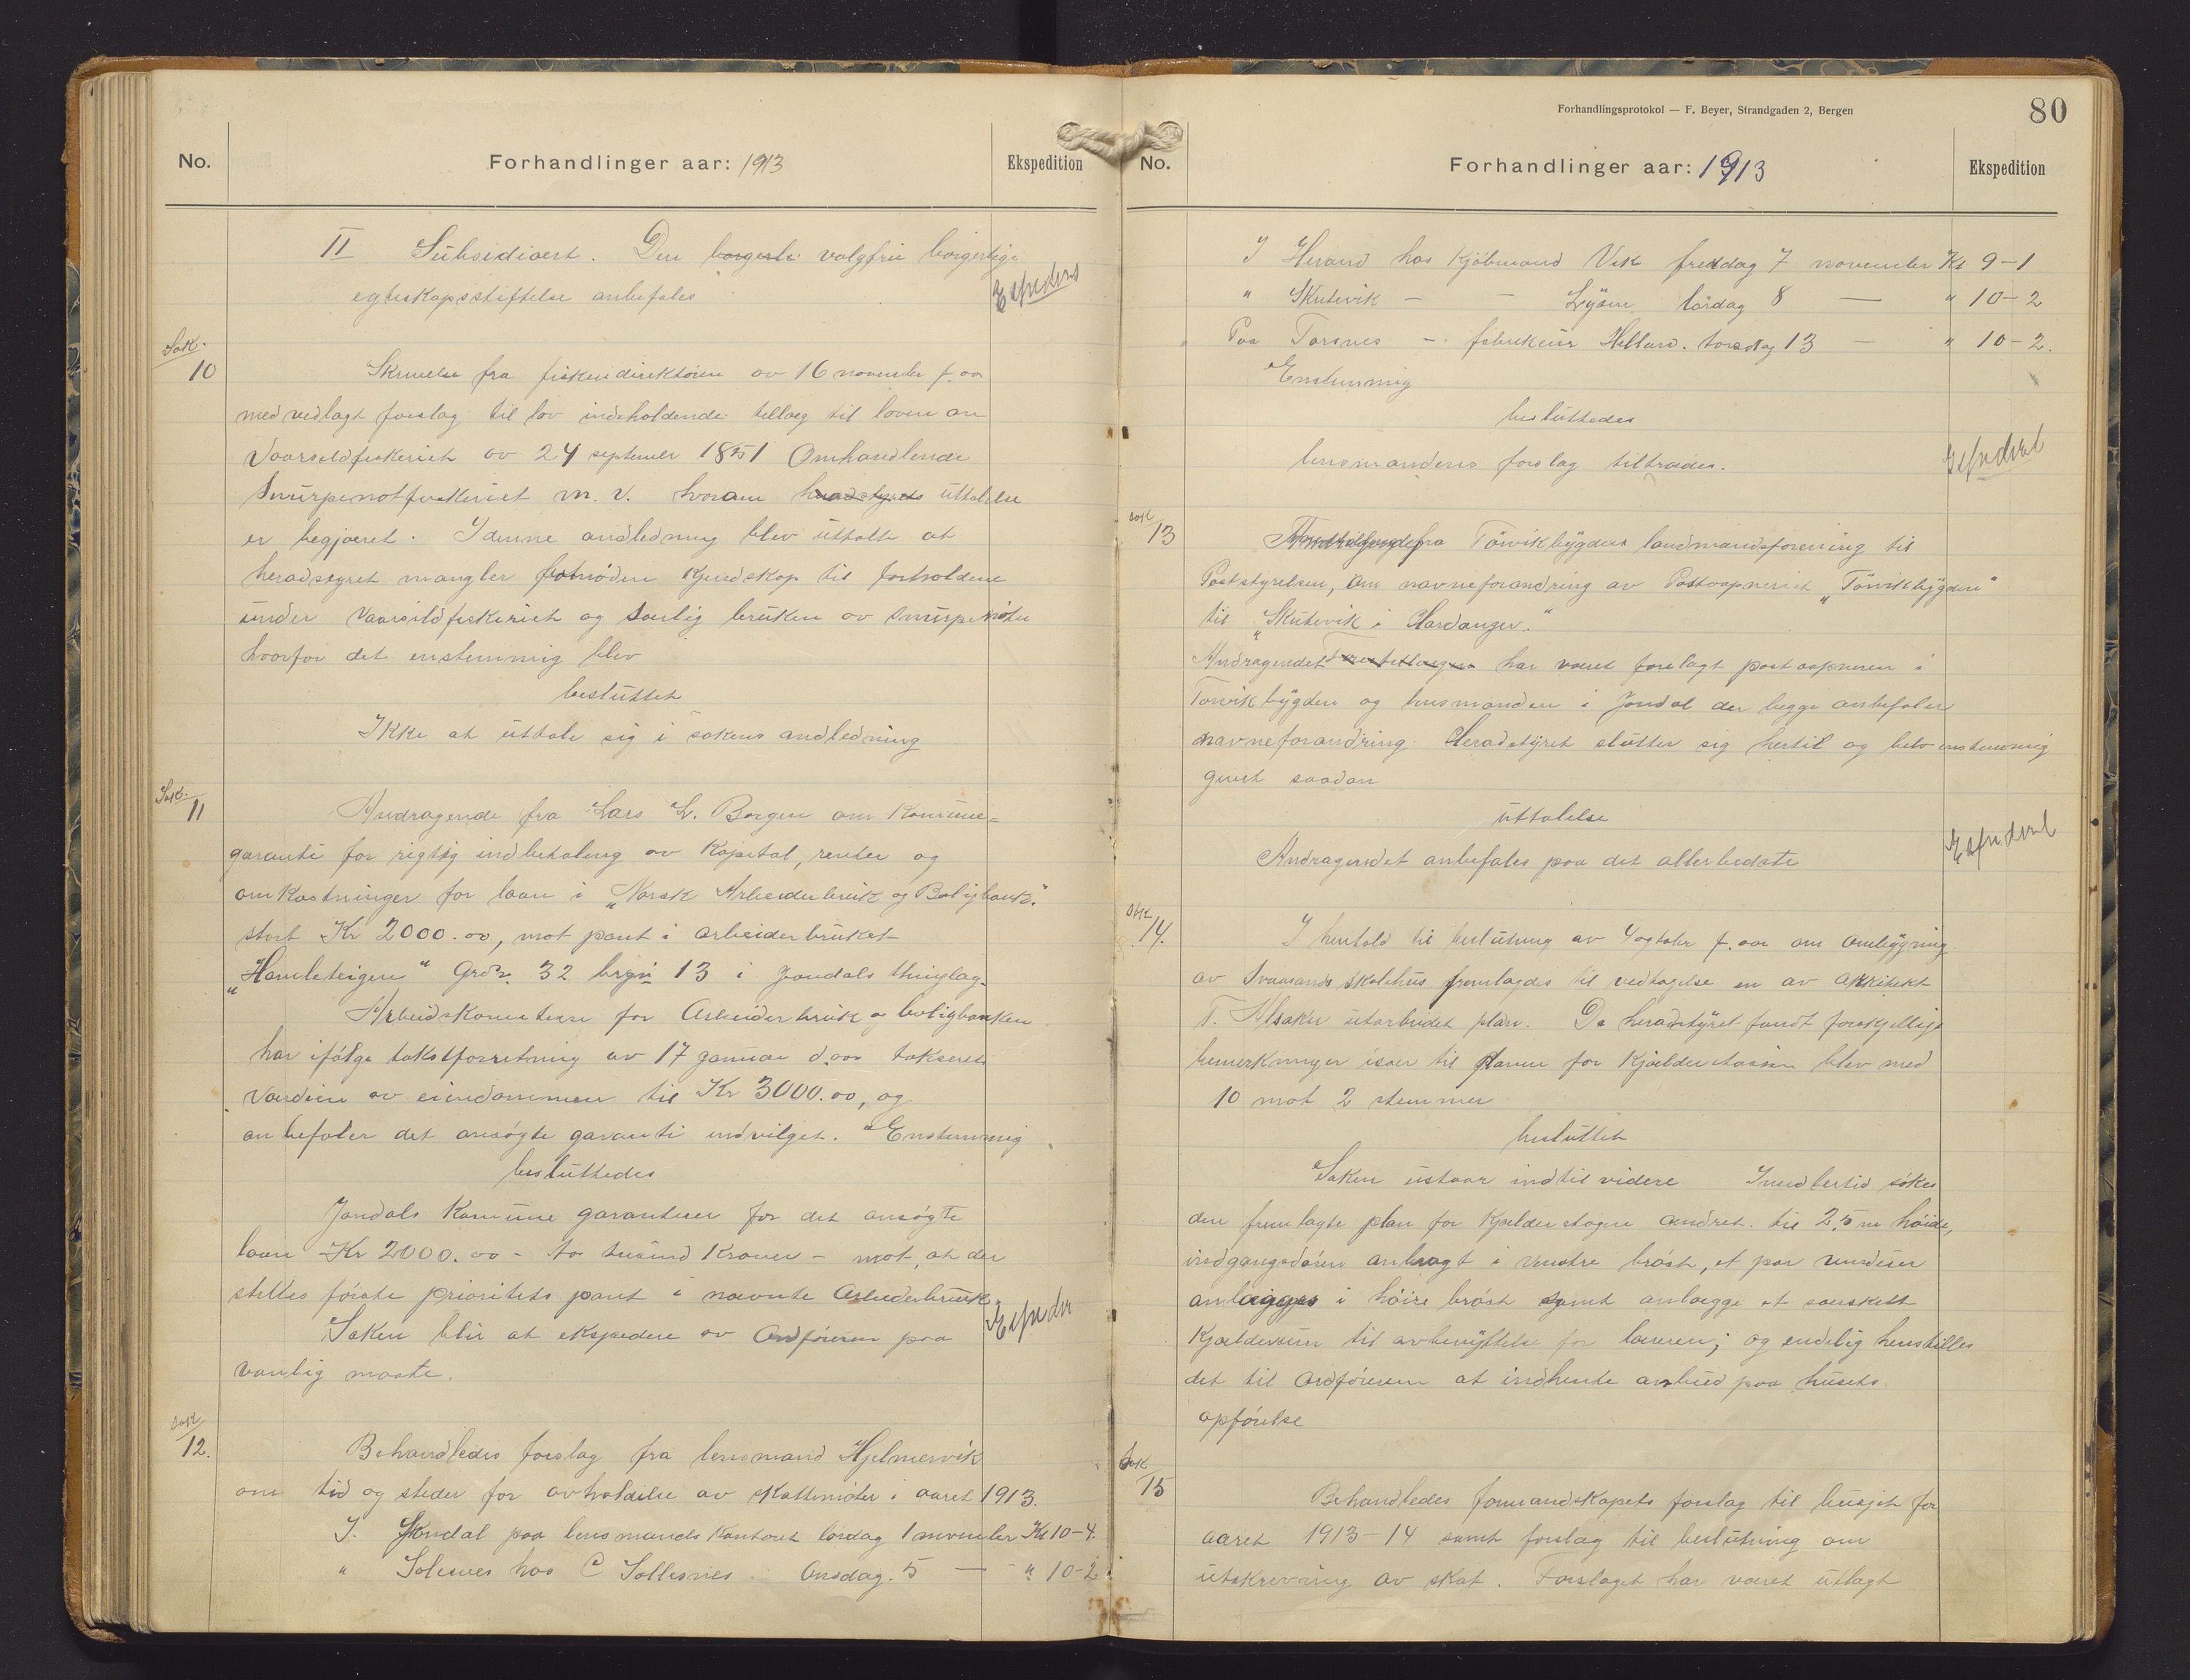 No. Forhandlinger aar: 1913 Ekspedition
II Subsidiært. Den borgerli valgfrie borgerlige
egteskapsstiftelse anbefales
Sak.
10 Skrivelse fra fiskeridirektøren av 16 november f. aa
med vedlagt forslag til lov indeholdende tillæg til loven om
Vaarsildfiskeriet av 24 september 1851 Omhandlende
Snurpenotfiskeriet m. v. hvorom heradstyrets uttalelse
er begjæret. I denne andledning blev uttalt at
heradstyret mangler fornøden kjendskap til forholdene
under vaarsildfiskeriet og særlig bruken av snurpenøter
hvorfor det enstemmig blev
besluttet
Ikke at uttale sig i sakens andledning
Sak.
11 Andragende fra Lars L. Borgen om Komune=
garanti for rigtig indbetaling av Kapital, renter og
omkostninger for laan i „Norsk Arbeiderbruk og Boligbank."
stort Kr 2000.00, mot pant i arbeiderbruket
„Hamleteigen" Grdn. 32 brgn 13 i Jondals thinglag.
Arbeidskomiteen for Arbeiderbruk og boligbanken
har ifølge takstforretning av 17 januar d. aar takseret
Værdien av eiendommen til Kr 3000.00, og
anbefaler det ansøgte garanti indvilget. Enstemmig
besluttedes
Jondals Komune garanterer for det ansøgte
laan Kr 2000.00 - to tusind Kroner - mot, at der
stilles første prioritets pant i nævnte Arbeiderbruk.
Saken blir at ekspedere av Ordføreren paa
vanlig maate.
Sak
12. Behandledes forslag fra lensmand Hjelmervik
om tid og steder for avholdelse av skattemøter i aaret 1913.
I. Jondal paa lensmands Kontoret lørdag 1 november Kl 10-4.
" Solesnes hos C Sollesnes. Onsdag. 5 — " 10-2.
Forhandlingsprotokol — F. Beyer, Strandgaden 2, Bergen
80
No. Forhandlinger aar: 1913 Ekspedition
I Herand hos Kjøbmand Vik fredag 7 november Kl 9-1
" Skutevik — — Lysen lørdag 8 — " 10-2
Paa Torsnes —. fabrikeier Helland. torsdag 13 — " 10-2.
Enstemmig
besluttedes
lensmandens forslag tiltrædes.
Sak
13 Andragende fra Tørvikbygdens landmandsforening til
Poststyrelsen, Om navneforandring av Postaapneriet „Tørvikbygden"
til „Skutevik i Hardanger."
Andragendet har været forelagt postaapneren i
Tørvikbygden og lensmanden i Jondal der begge anbefaler
navneforandring. Heradstyret slutter sig hertil og blev enstemmig
givet saadan
uttalelse
Andragendet anbefales paa det allerbedste
Sak
14. I henhold til beslutning av 4 ogtober f. aar om Ombygning
av Svaasands skolehus fremlagdes til vedtagelse en av arkitekt
T. Alsaker utarbeidet plan. Da heradstyret fandt forskjellige
bemerkninger især til planen for Kjælderetasjen blev med
10 mot 2 stemmer
besluttet
Saken utstaar indtil videre Imidlertid søkes
den fremlagte plan for Kjælderetagen ændret. til 2,5 m høide,
indgangsdøren anbragt i venstre brøst, et par vinduer
anlægges i høire brøst samt anlægge et særskilt
Kjælderrum til avbenyttelse for læreren; og endelig henstilles
det til Ordføreren at indhente anbud paa husets
opførelse
Sak
15 Behandledes formandskapets forslag til busjet for
aaret 1913-14 samt forslag til beslutning om
utskrivning av skat. Forslaget har været utlagt